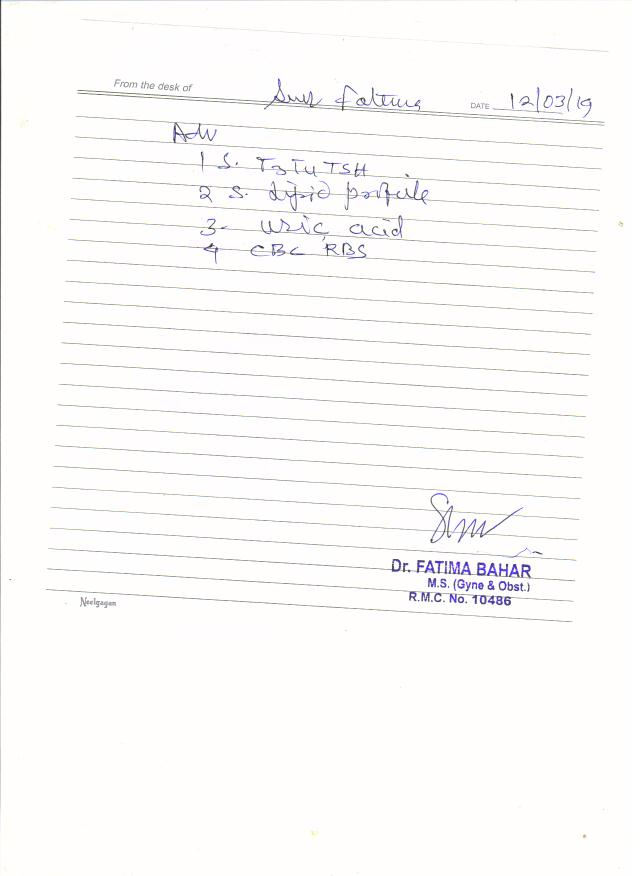 From the desk of Fatima DATE 12/03/19
Adv
1 S. T3 T4 TSH
2 S. Lipid profile
3- uric acid
4 CBC, RBS
Dr. FATIMA BAHAR
M.S. (Gyne & Obst.)
R.M.C. No. 10486
Neelgagan